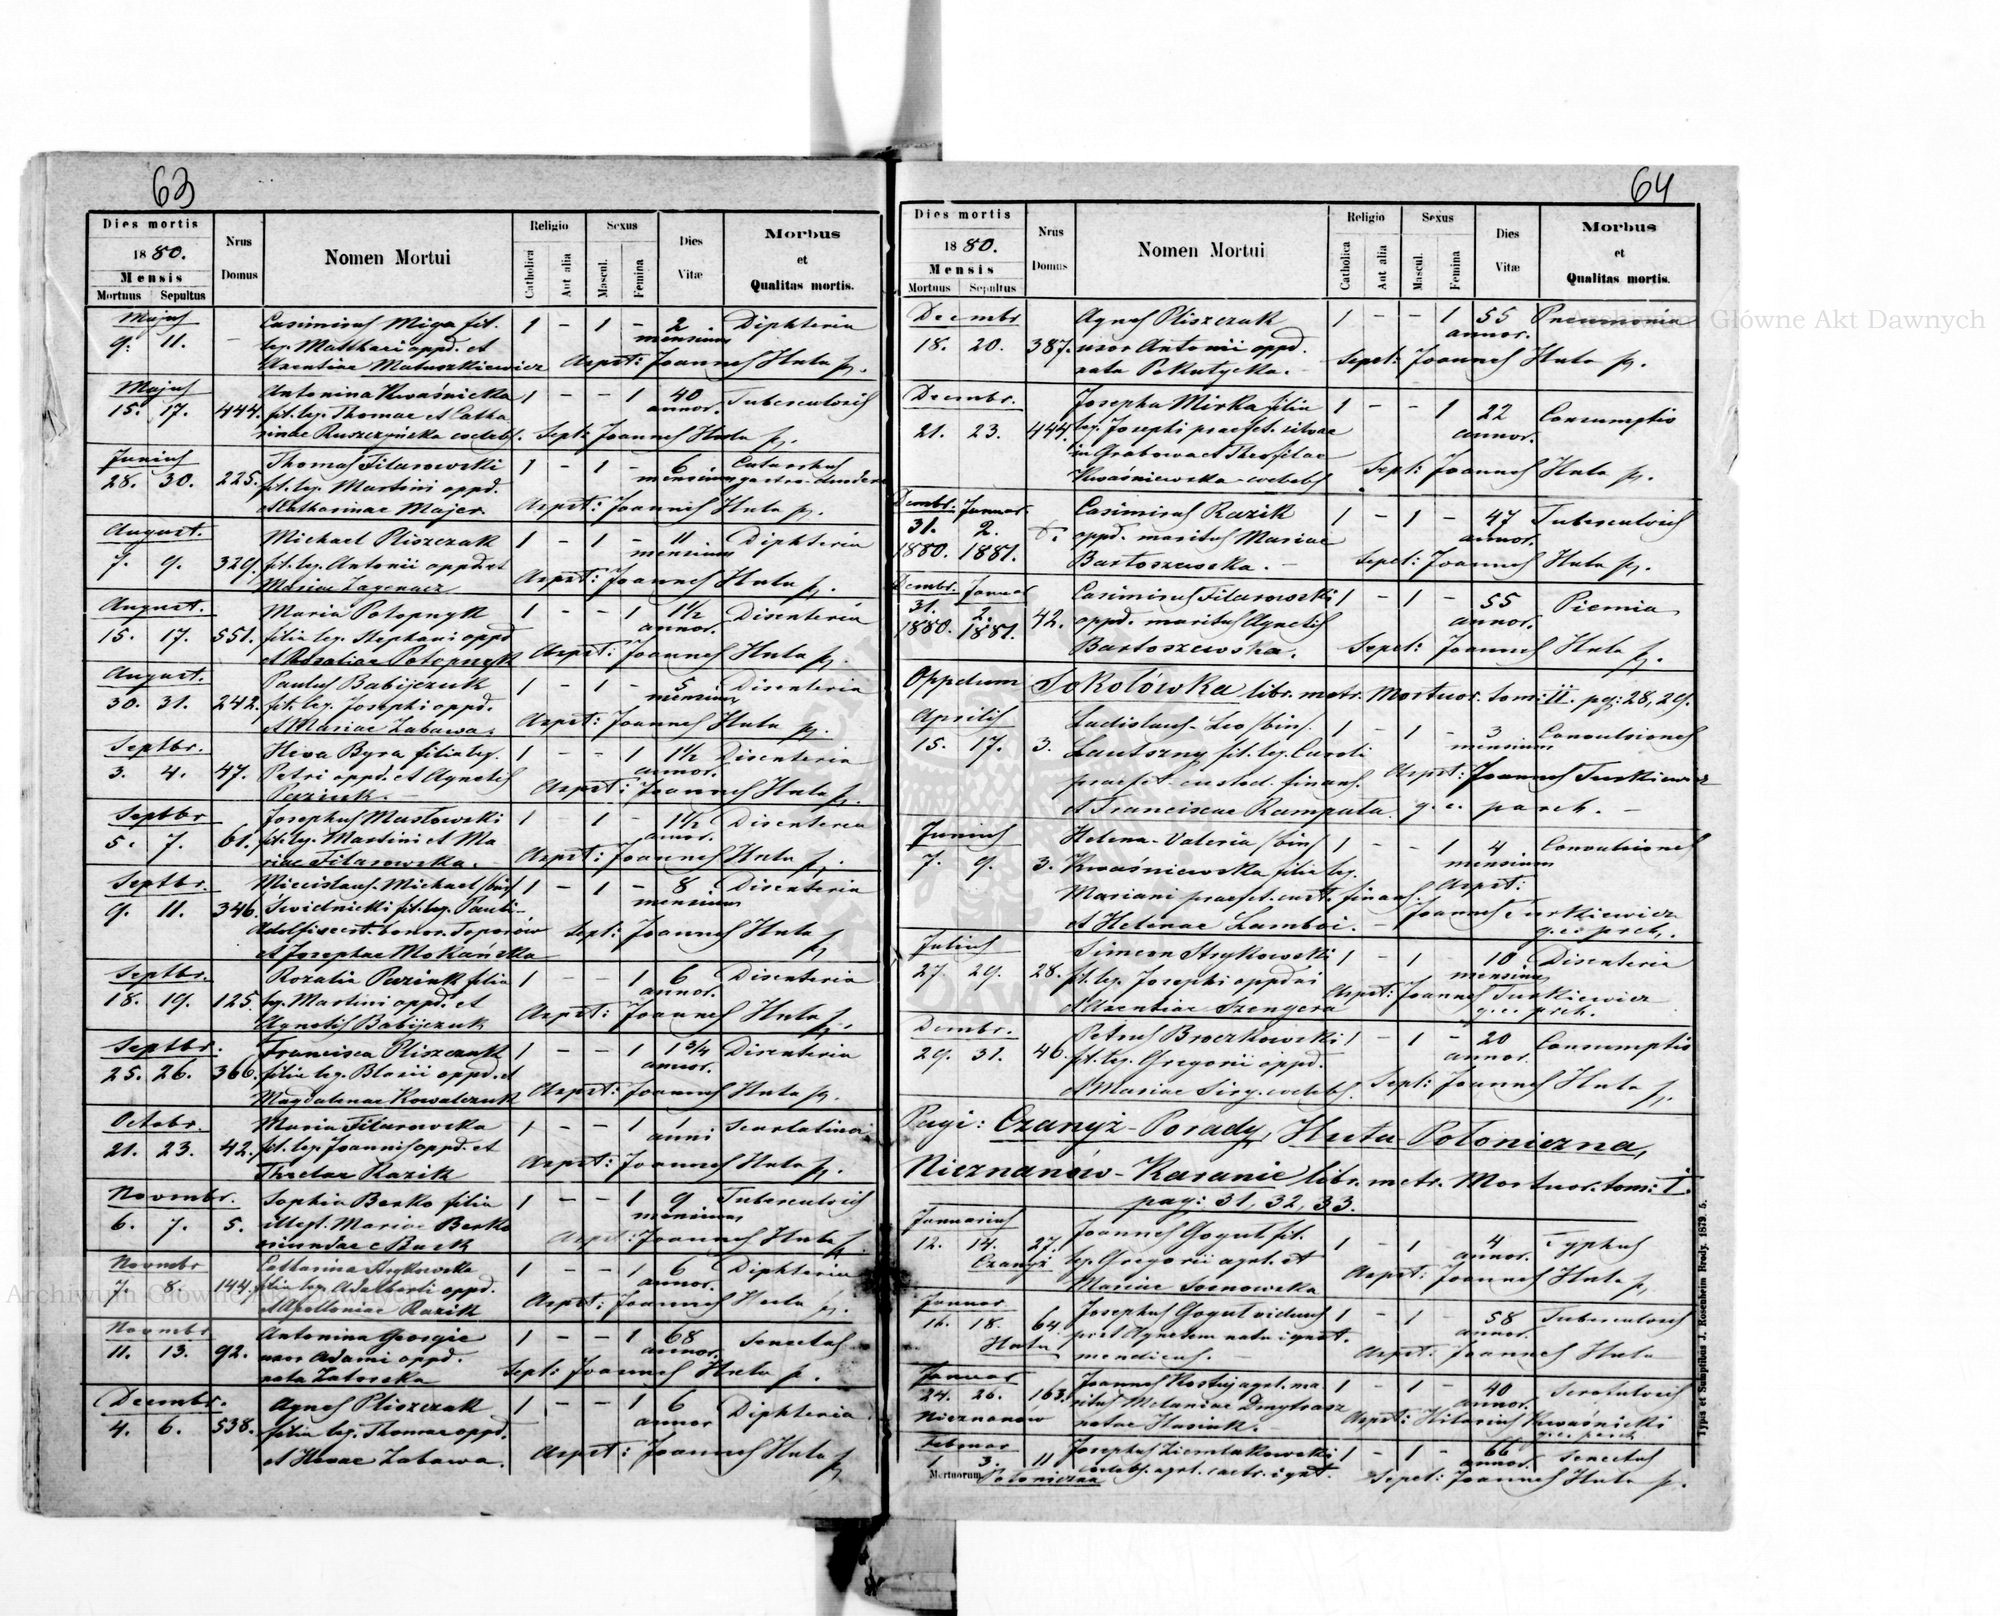 63
Dies mortis
1880.
Mensis
Mortuus Sepultus
Nrus Domus
Nomen Mortui
Religio
Catholica
Aut alia
Sexus
Mascul.
Femina
Dies Vitæ
Morbus et Qualitas mortis.
Majus Casimirus Miga fil. 1 - 1 - 2 Diphteria
9. 11. - leg. Matthaei oppd. et mensium
Uxentiae Matuszkiewicz Aspst: Joannes Huta p.
Majus Antonina Kwaśnicka 1 - - 1 40 Tuberculosis
15. 17. 444. fil. leg. Thomae et Catha annor.
rinae Ruszczyńska coelebs. Sept: Joannes Huta p.
Junius Thomas Filarowski 1 - 1 - 6 Catarrhus
28. 30. 225. fil. leg. Martini oppd. mensium gastro
et Catharinae Majer Aspst: Joannes Huta p.
August. Michael Pliszczak 1 - 1 - 11 Diphteria
7. 9. 329. fil. leg. Antonii oppd. et mensium
Mariae Zagenacz Aspst: Joannes Huta p.
August. Maria Potopnyk 1 - - 1 1 1/2 Disenteria
15. 17. 551. filia leg. Stephani oppd annor.
et Rosaliae Potopnyk Aspst: Joannes Huta p.
August. Paulus Babijczuk 1 - 1 - 5 Disenteria
30. 31. 242. fil. leg. Josephi oppd. mensium
et Mariae Zabawa. Aspst: Joannes Huta p.
Septbr. Heva Byra filia leg. 1 - - 1 1 1/2 Disenteria
3. 4. 47. Petri oppd. et Agnetis annor.
Paziuk. - Aspst: Joannes Huta p.
Septbr Josephus Masłowski 1 - 1 - 1 1/2 Disenteria
5. 7. 61. fil. leg. Martini et Ma annor.
riae Filarowska. Aspst: Joannes Huta p.
Septbr. Miecislaus-Michael /bin/ 1 - 1 - 8 Disenteria
9. 11. 346. Swidnicki fil. leg. Pauli- mensium
Adolfi bonor. Toporów Sept: Joannes Huta
et Josephae Mokańska p
Septbr. Rozalia Paziuk filia 1 - - 1 6 Disenteria
18. 19. 125. leg. Martini oppd. et annor.
Agnetis Babijczuk Aspst: Joannes Huta p.
Septbr. Francisca Pliszczak 1 - - 1 1 3/4 Disenteria
25. 26. 366. filia leg. Blasii oppd. et annor.
Magdalenae Kowalczuk Aspst: Joannes Huta p.
Octobr. Maria Filarowska 1 - - 1 1 Scarlatina
21. 23. 42. fil. leg. Joannis oppd. et anni
Theclae Razik Aspst: Joannes Huta p.
Novmbr. Sophia Berko filia 1 - - 1 9 Tuberculosis
6. 7. 5. illegt. Mariae Berko mensium
oriundae e Busk Aspst: Joannes Huta p.
Novmbr Catharina Strykowska 1 - - 1 6 Diphteria
7. 8. 144. filia leg. Adalberti oppd. annor.
et Apolloniae Razik Aspst: Joannes Huta p.
Novmbr Antonina Georgie 1 - - 1 68 Senectus
11. 13. 92. uxor Adami oppd. annor.
nata Zatorska Sept: Joannes Huta p.
Decmbr. Agnes Pliszczak 1 - - 1 6 Diphteria
4. 6. 538. filia leg. Thomae oppd. annor
et Hevae Zabawa. Aspst: Joannes Huta p
64
Dies mortis
1880.
Mensis
Mortuus Sepultus
Nrus Domus
Nomen Mortui
Religio
Catholica
Aut alia
Sexus
Mascul.
Femina
Dies Vitæ
Morbus et Qualitas mortis.
Decmbr Agnes Pliszczak 1 - - 1 55 Pneumonia
18. 20. 387. uxor Antonii oppd. annor.
nata Pokutycka. Sepst: Joannes Huta p.
Decmbr. Josepha Mirka filia 1 - - 1 22 Consumptio
21. 23. 444. leg. Josephi praefet. silvae annor.
in Grabowa et Theofilae Sept: Joannes Huta p.
Kwaśniewska - coelebs
Decmbr. Januar Casimirus Razik 1 - 1 - 47 Tuberculosis
31. 2. oppd. maritus Mariae annor.
1880. 1881. Bartoszewska. - Sepst: Joannes Huta p.
Decmbr. Januar Casimirus Filarowski 1 - 1 - 55 Piemia
31. 2. 42. oppd. maritus Agnetis annor.
1880. 1881. Bartoszewska. Sepst: Joannes Huta p.
Oppidum Sokołówka libr. metr. Mortuor. tom: II. pg: 28, 29.
Aprilis Ladislaus-Leo /bin/ 1 - 1 - 3 Convulsiones
15. 17. 3. Lautszny fil. leg. Caroli mensium
praefet. custod. finans. Aspst: Joannes Turkiewicz
et Franciscae Rampuła. g. c. parch. -
Junius Helena-Valeria /bin/ 1 - - 1 4 Convulsiones
7. 9. 3. Kwaśniewska filia leg. mensium
Mariani praefet. cust. finans. Aspst:
et Helenae Lamboi. - Joannes Turkiewicz
g. c. prch.
Julius Simeon Strykowski 1 - 1 - 10 Disenteria
27 29. 28. fil. leg. Josephi oppdni mensium
et Uxentiae Szengera Aspst: Joannes Turkiewicz
g. c. prch.
Decmbr. Petrus Broczkowski 1 - 1 - 20 Consumptio
29. 31. 46. fil. leg. Gregorii oppd. annor.
et Mariae Siry. coelebs. Sept: Joannes Huta p.
Pagi: Czanyż - Porady, Huta Połoniczna,
Nieznanów - Karanie libr. metr. Mortuor. tom: I.
pag: 31, 32, 33.
Januarius Joannes Gogut fil. 1 - 1 - 4 Typhus
12. 14. 27. leg. Gregorii agrl. et annor.
Czanyż Mariae Sosnowska Aspst: Joannes Huta p
Januar Josephus Gogut viduus 1 - 1 - 58 Tuberculosis
16. 18. 64. post Agnetem nata ignot. annor.
Huta mendicus. - Aspst: Joannes Huta
Januar Joannes Kostuj agrl. ma 1 - 1 - 40 Scrofulosis
24. 26. 163. ritus Melaniae Dmytrasz annor.
Nieznanów natae Hasiuk. - Aspst: Hilarius Kwaśnicki
g. c. parch
Februar Josephus Ziembakowski 1 - 1 - 66 Senectus
1 3. 11 coelebs. agrl. caetr. ignot. annor.
Połoniczna Sepst: Joannes Huta p.
Mortuorum
Typis et Sumptibus J. Rosenheim Brody. 1879. 5.
Archiwum Główne Akt Dawnych
Archiwum Główne Akt Dawnych